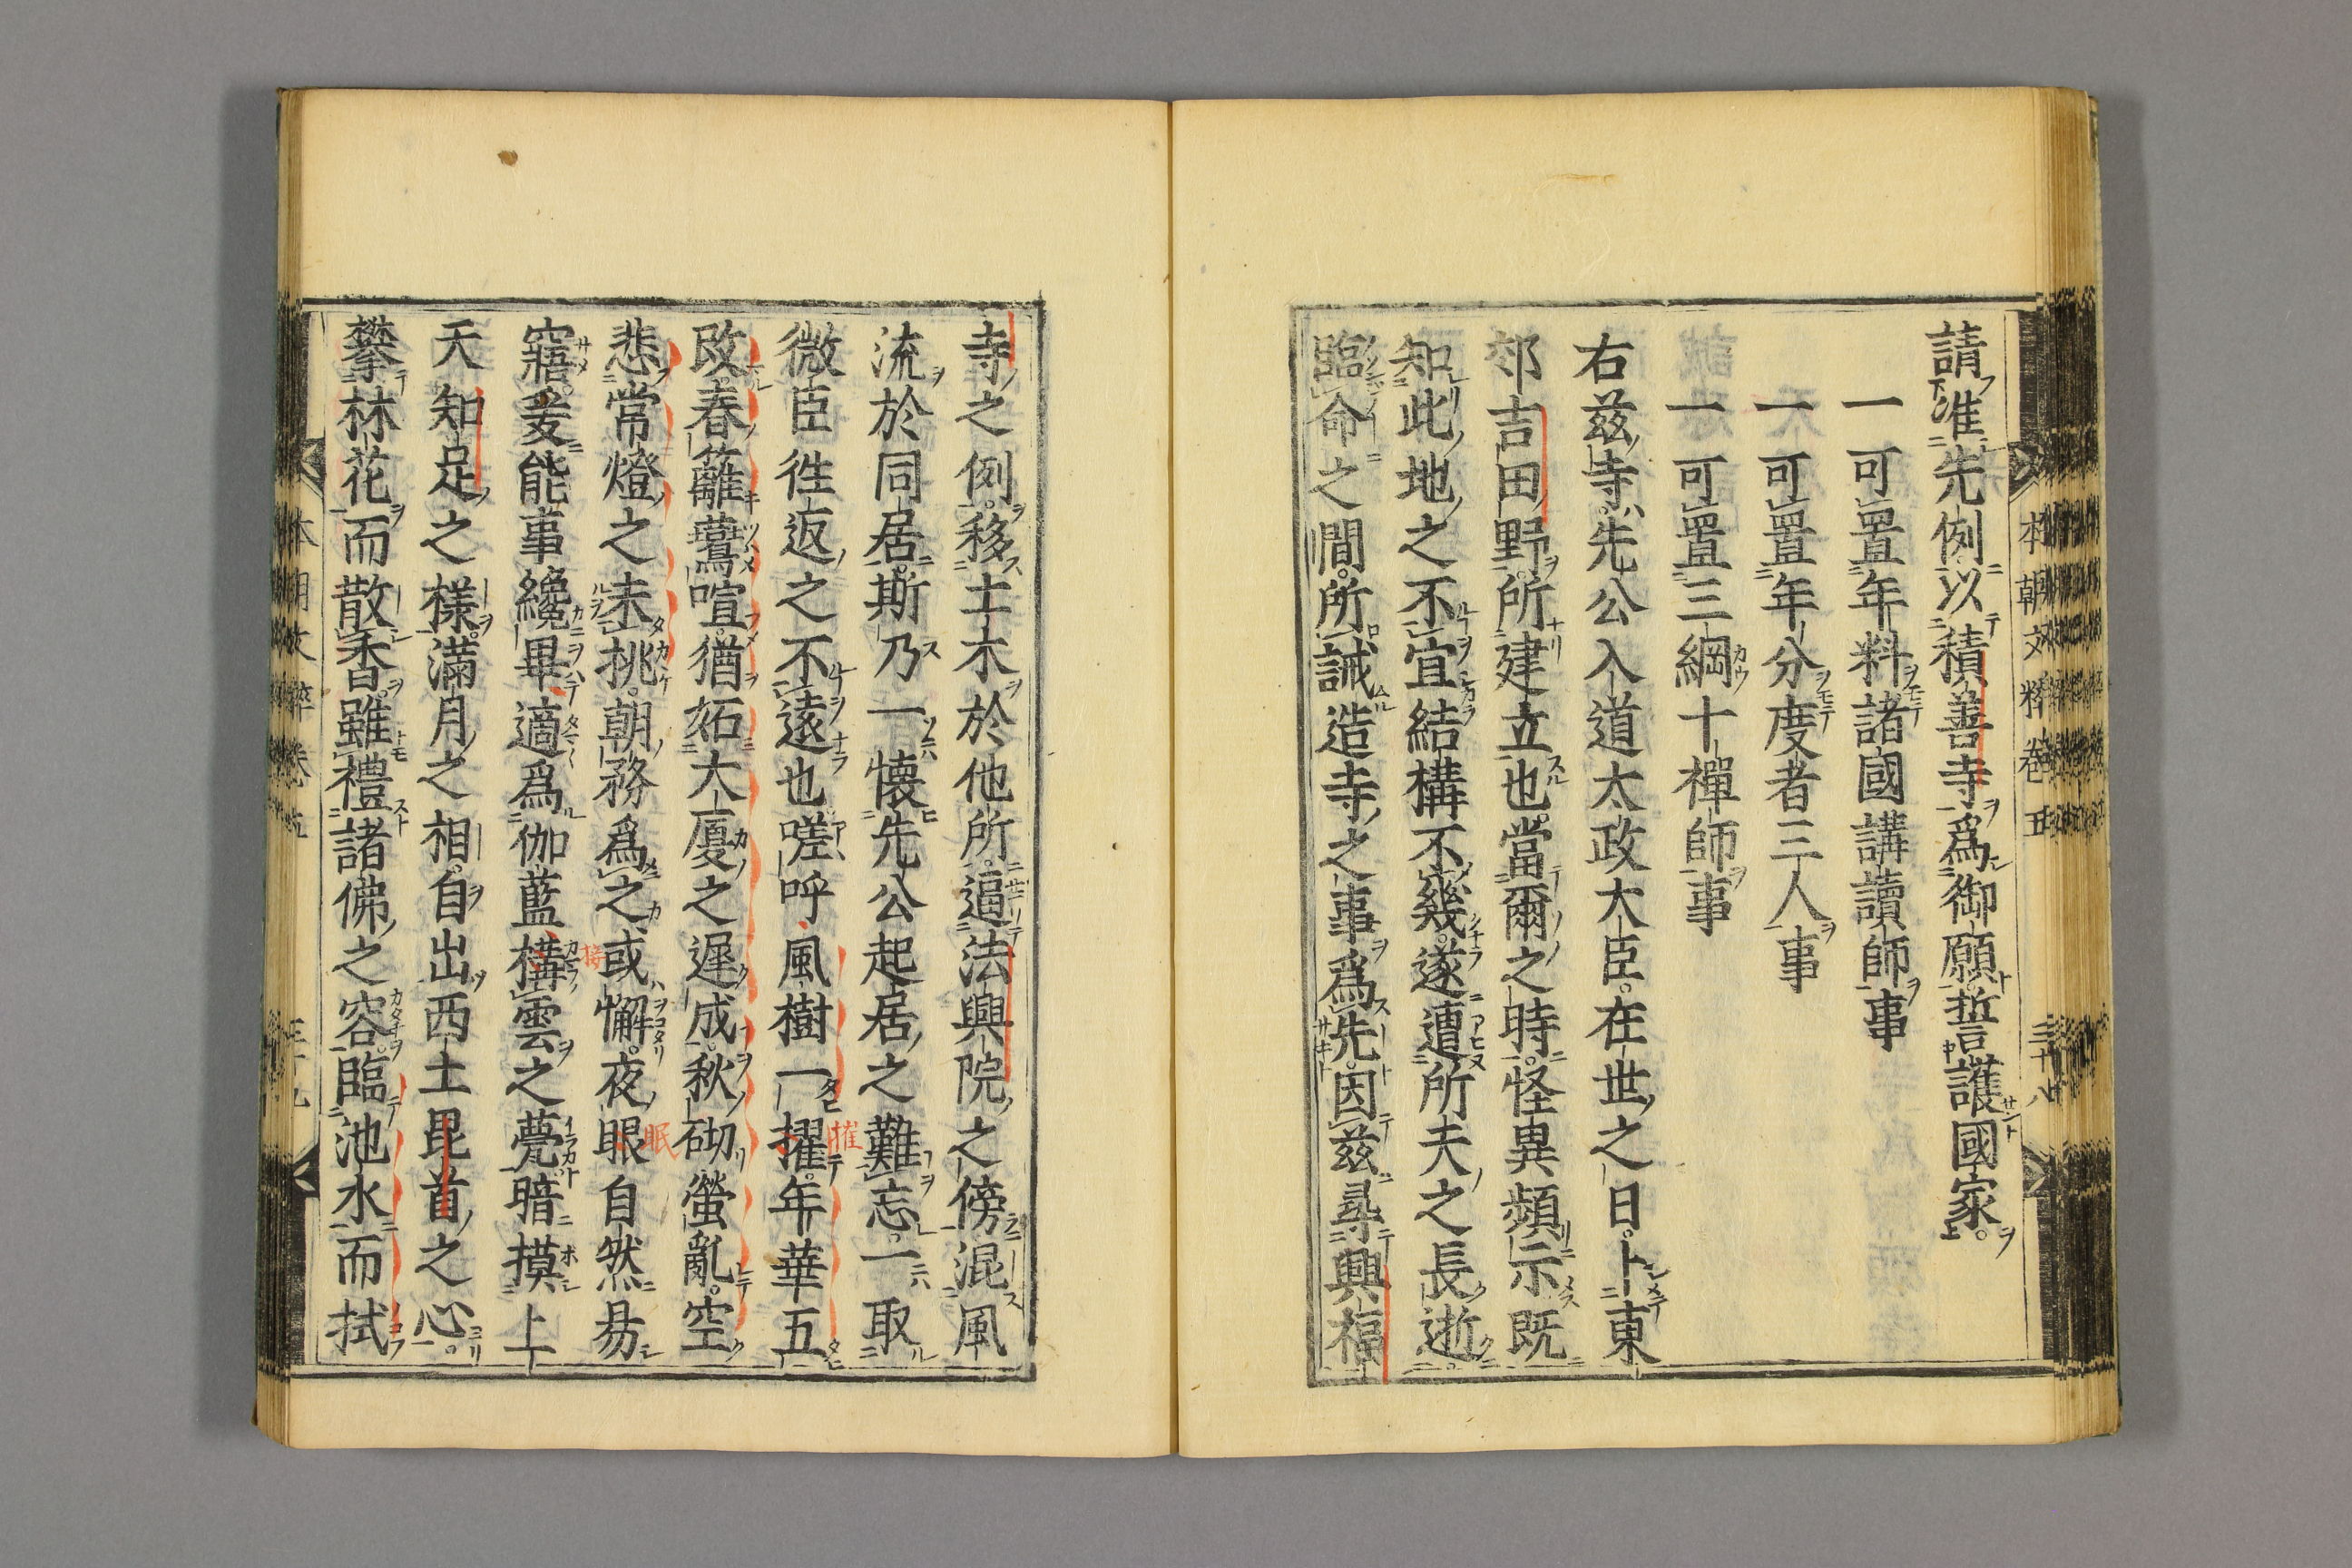 請准先例以積善寺爲御願誓護國家。
一可置年料諸國講讀師事
一可置年分度者三人事
一可置三綱十禪師事
右兹寺。先公入道太政大臣。在世之日。卜東
郊吉田野。所建立也。當爾之時。怪異頻示既
知此地之不宜結構不幾。遂遭所夫之長逝。
臨命之間。所誡造寺之事爲先。因兹尋興福
本朝文粹卷五
三十八
寺之例。移土木於他所。逼法興院之傍混風
流於同居。斯乃一懐先公起居之難忘。一取
微臣徃返之不遠也嗟呼風樹一擢。年華五
改。春籬鶯喧。猶妬大厦之遲成。秋砌螢亂。空
悲常燈之未挑。朝務爲之或懈。夜眼自然易
寤。爰能事纔畢。適爲伽藍構雲之甍。暗摸上
天知足之樣。滿月之相。自出西土毘首之心。
攀林花而散香。雖禮諸佛之容。臨池水而拭
摧
眠
接
本朝文粹卷五
三十九